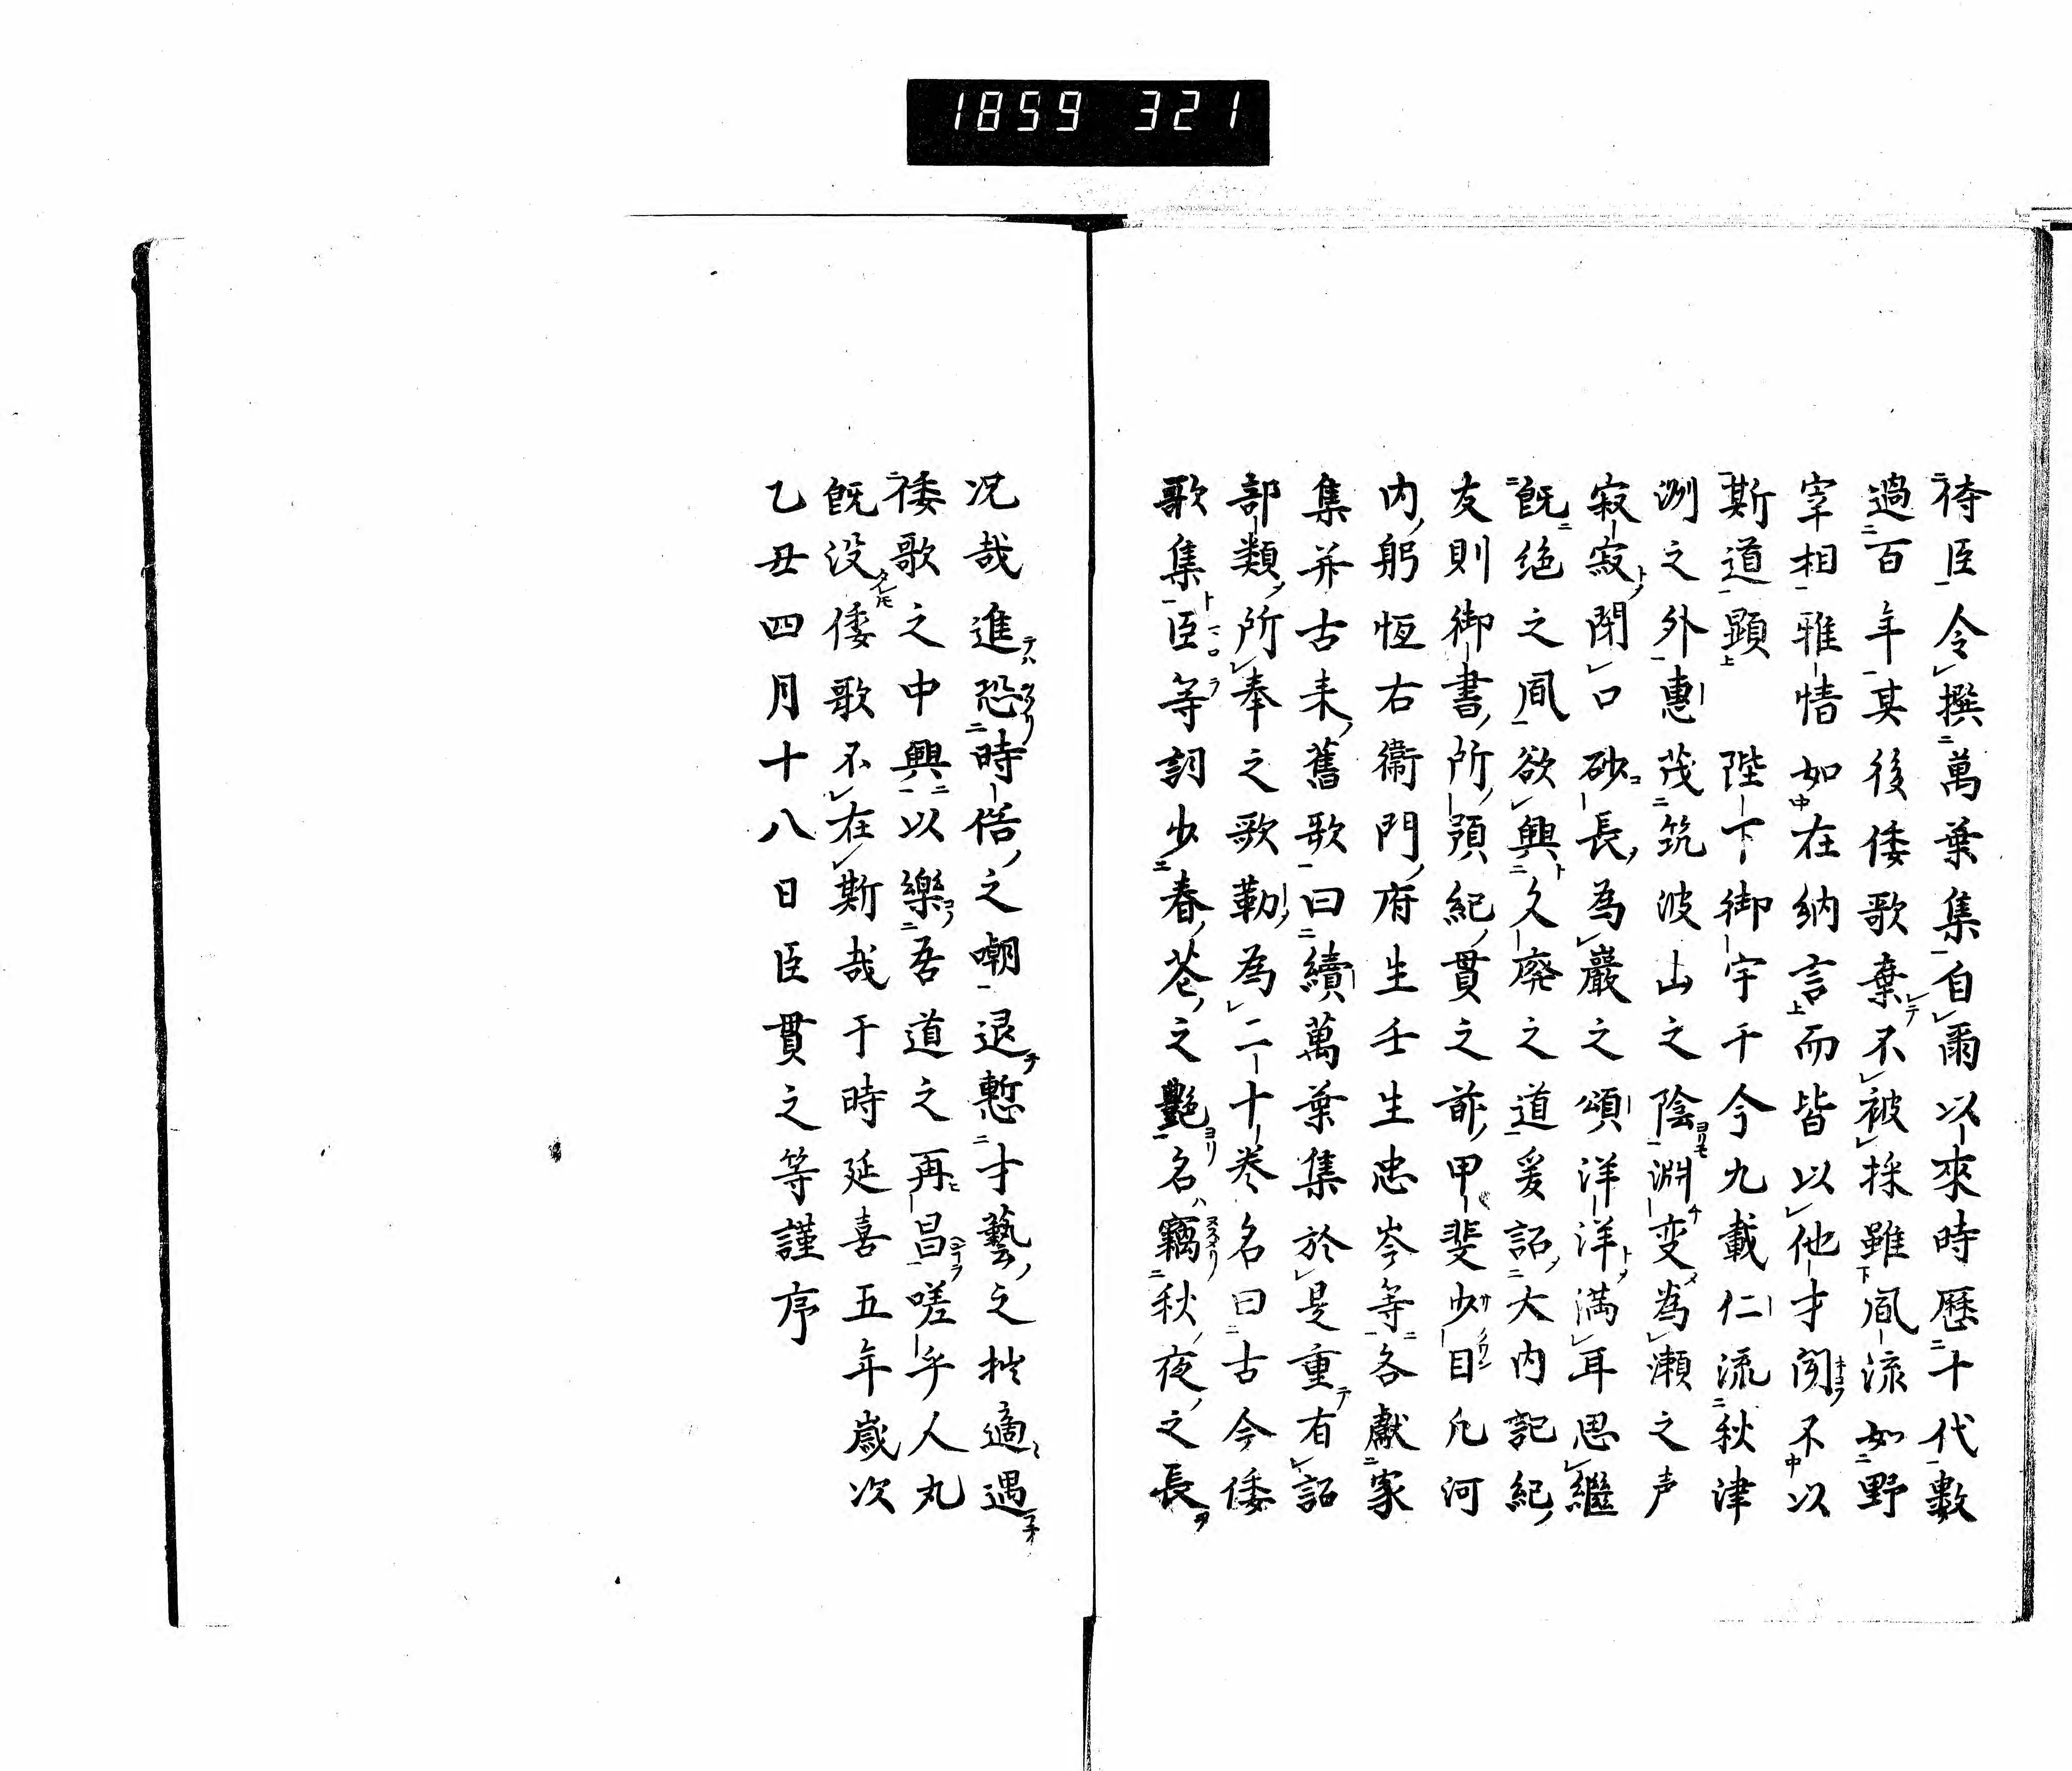 1859 321
待臣令撰萬葉集自爾以來時歴十代數
過百年其後倭歌棄不被採雖風流如野
宰相雅情如在納言而皆以他才聞不以
斯道顕　陛下御宇于今九載仁流秋津
洲之外惠茂筑波山之陰淵変為瀬之声
寂寂閇口砂長為巖之頌洋洋満耳思繼
既絶之風欲興久廃之道爰詔大内記紀
友則御書所預紀貫之前甲斐少目凡河
内躬恒右衞門府生壬生忠岑等各獻家
集并古来舊歌曰續萬葉集於是重有詔
部類所奉之歌勒為二十巻名曰古今倭
歌集臣等詞少春花之艶名竊秋夜之長
况哉進恐時俗之嘲退慙才藝之拙適遇
倭歌之中興以樂吾道之再昌嗟乎人丸
既没倭歌不在斯哉于時延喜五年歳次
乙丑四月十八日臣貫之等謹序